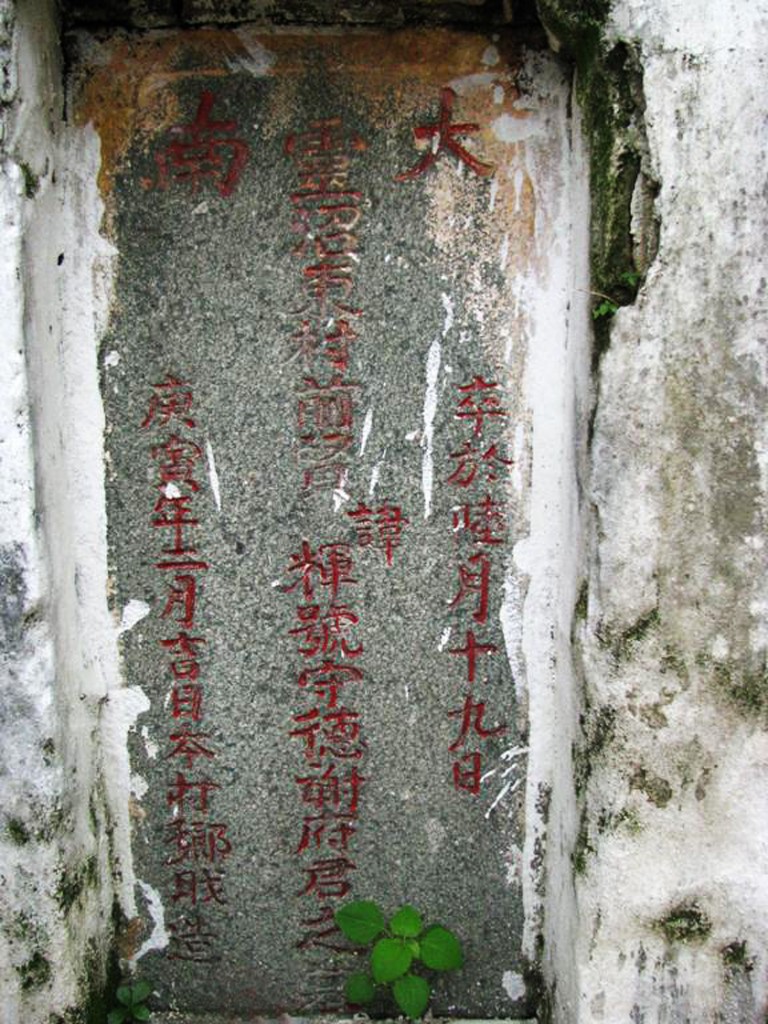 大
卒於陸月十九日
靈治東村前設 諱輝號守德謝府君之
南
庚寅年十二月吉日本村鄉